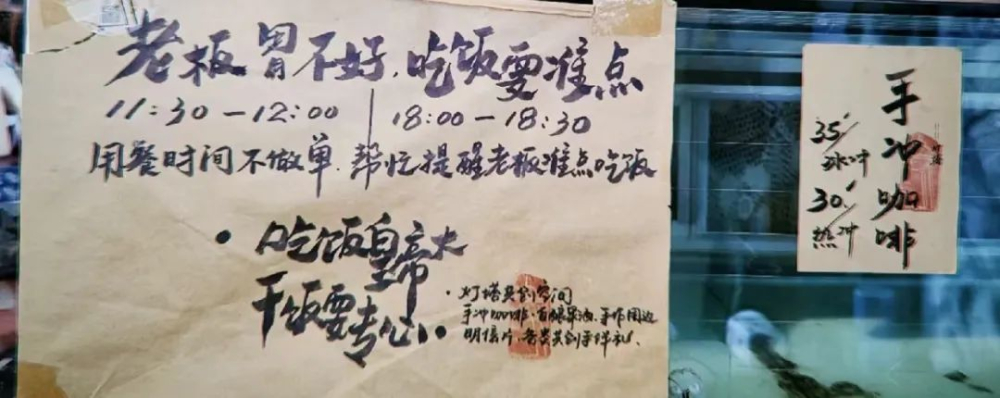 老板胃不好,吃饭要准点
11:30—12:00 | 18:00—18:30
用餐时间不做单,帮忙提醒老板准点吃饭
• 吃饭皇帝大
干饭要专心..
• 灯塔共创空间
手冲咖啡·百银果酒·手作周边
明信片·各类共创手伴礼.
手冲咖啡
35/
冰冲
30/
热冲